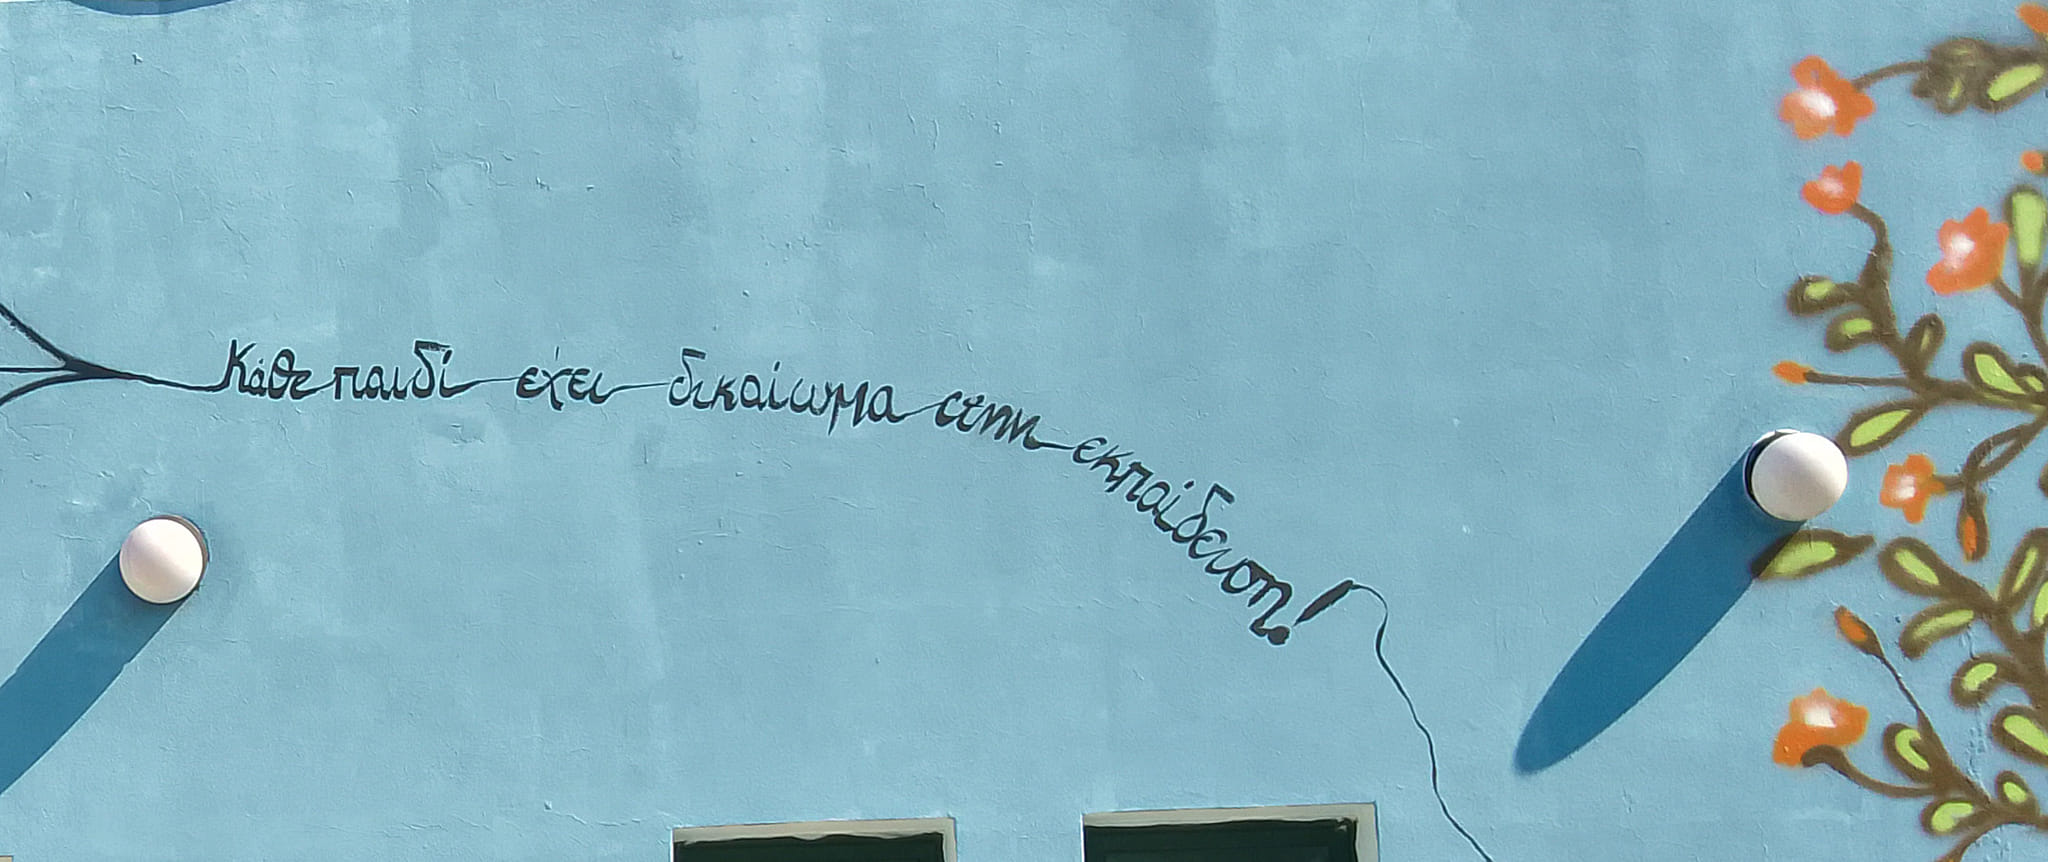 Κάθε παιδί έχει δικαίωμα στην εκπαίδευση!